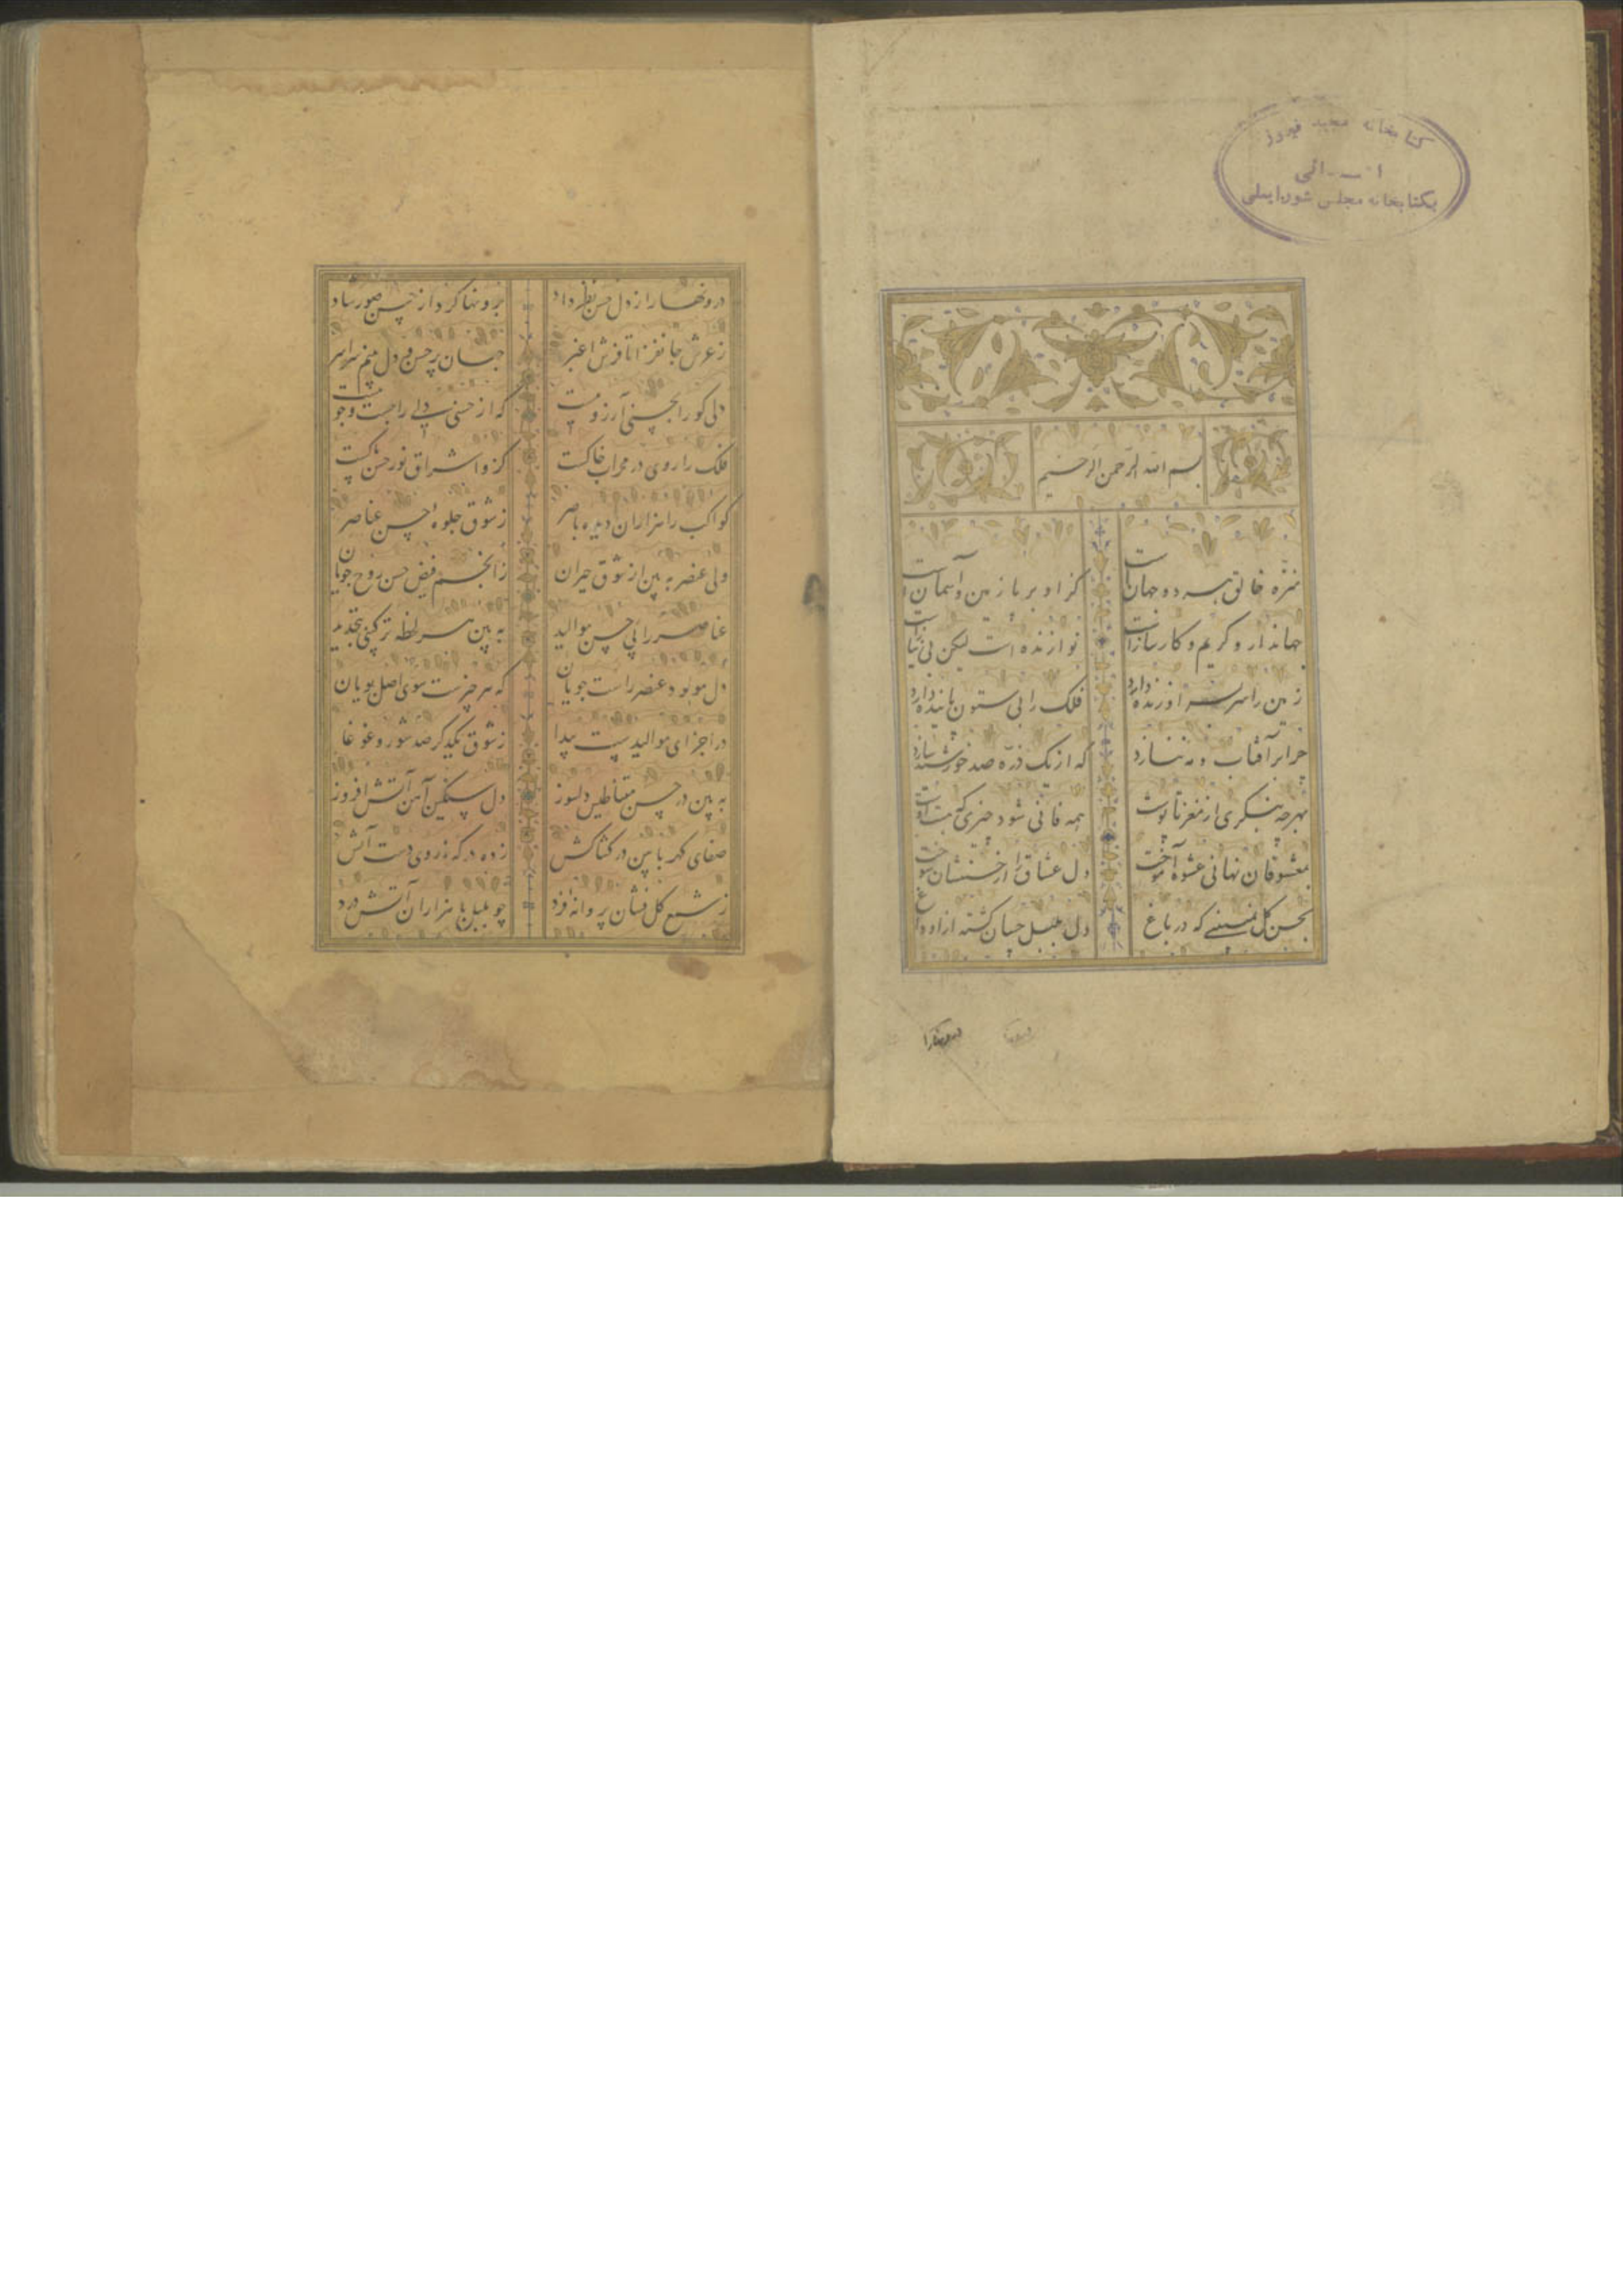 کتابخانه مجید فیروز
اهدائی
بکتابخانه مجلس شورایملی
بسم الله الرحمن الرحیم
منزه خالق هر دو جهان است
کز او بر پا زمین و آسمان است
جهاندار و کریم و کارساز است
نوازنده است لیکن بی نیاز است
زمین را سر سر او زنده دارد
فلک را بی ستون پاینده دارد
چرا بر آفتاب و مه ننازد
که از یک ذره صد خورشید سازد
بهر چه بنگری از مغز تا پوست
همه فانی شود چیزی که هست اوست
بمعشوقان نهانی عشوه آموخت
دل عشاق را از حسنشان سوخت
بحسن گل نبینی که در باغ
دل بلبل چسان گشته ازاو داغ
درونها را
درونها را از دل حسن نظر داد
برونها کرد از حسن صور شاد
ز عرش جانفزا تا فرش اغبر
جهان پر حسن و دل بینم سراسر
دلی کو را بحسنی آرزو نیست
که از حسنی دلی را جست و جو نیست
فلک را روی در محراب خاکست
کز و اشراق نور حسن پاکست
کواکب را هزاران دیده باصر
ز شوق جلوه حسن عناصر
ولی عنصر به بین از شوق حیران
ز انجم فیض حسن روح جویان
عناصر را پی حسن موالید
به بین هر لحظه ترکیبی بتجدید
دل مولود عنصر راست جویان
که هر چیزست سوی اصل پویان
در اجزای موالیدست پیدا
ز شوق یکدگر صد شور و غوغا
به بین در حسن مقناطیس دلسوز
دل سنگین آهن آتش افروز
صفای کهربا بین در کشاکش
زده در که ز روی دست آتش
ز شمع گل فشان پروانه فرد
چو بلبل با هزاران آتش درد